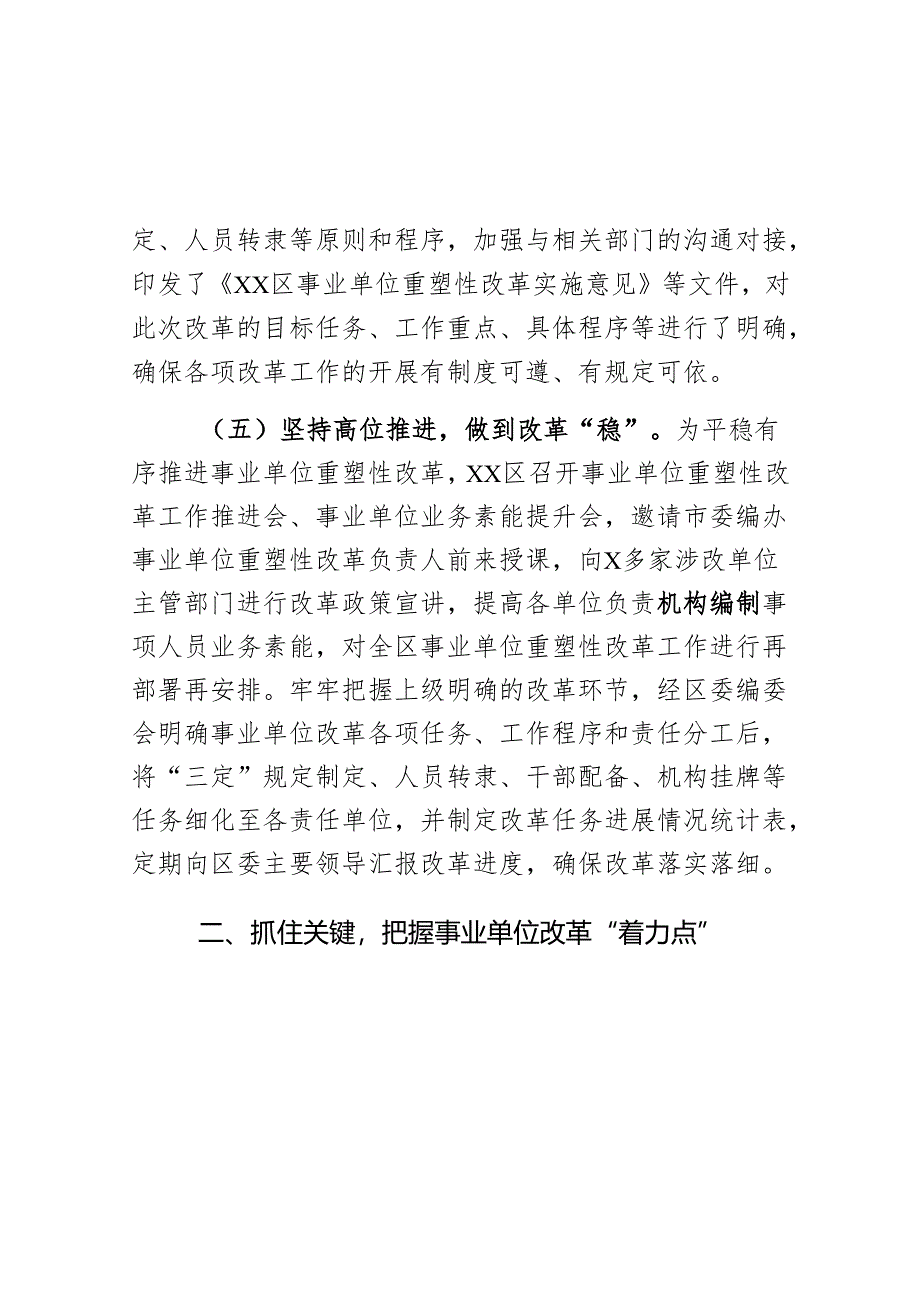 定、人员转隶等原则和程序，加强与相关部门的沟通对接，
印发了《XX区事业单位重塑性改革实施意见》等文件，对
此次改革的目标任务、工作重点、具体程序等进行了明确，
确保各项改革工作的开展有制度可遵、有规定可依。
（五）坚持高位推进，做到改革“稳”。为平稳有
序推进事业单位重塑性改革，XX区召开事业单位重塑性改
革工作推进会、事业单位业务素能提升会，邀请市委编办
事业单位重塑性改革负责人前来授课，向X多家涉改单位
主管部门进行改革政策宣讲，提高各单位负责机构编制事
项人员业务素能，对全区事业单位重塑性改革工作进行再
部署再安排。牢牢把握上级明确的改革环节，经区委编委
会明确事业单位改革各项任务、工作程序和责任分工后，
将“三定”规定制定、人员转隶、干部配备、机构挂牌等
任务细化至各责任单位，并制定改革任务进展情况统计表，
定期向区委主要领导汇报改革进度，确保改革落实落细。
二、抓住关键，把握事业单位改革“着力点”